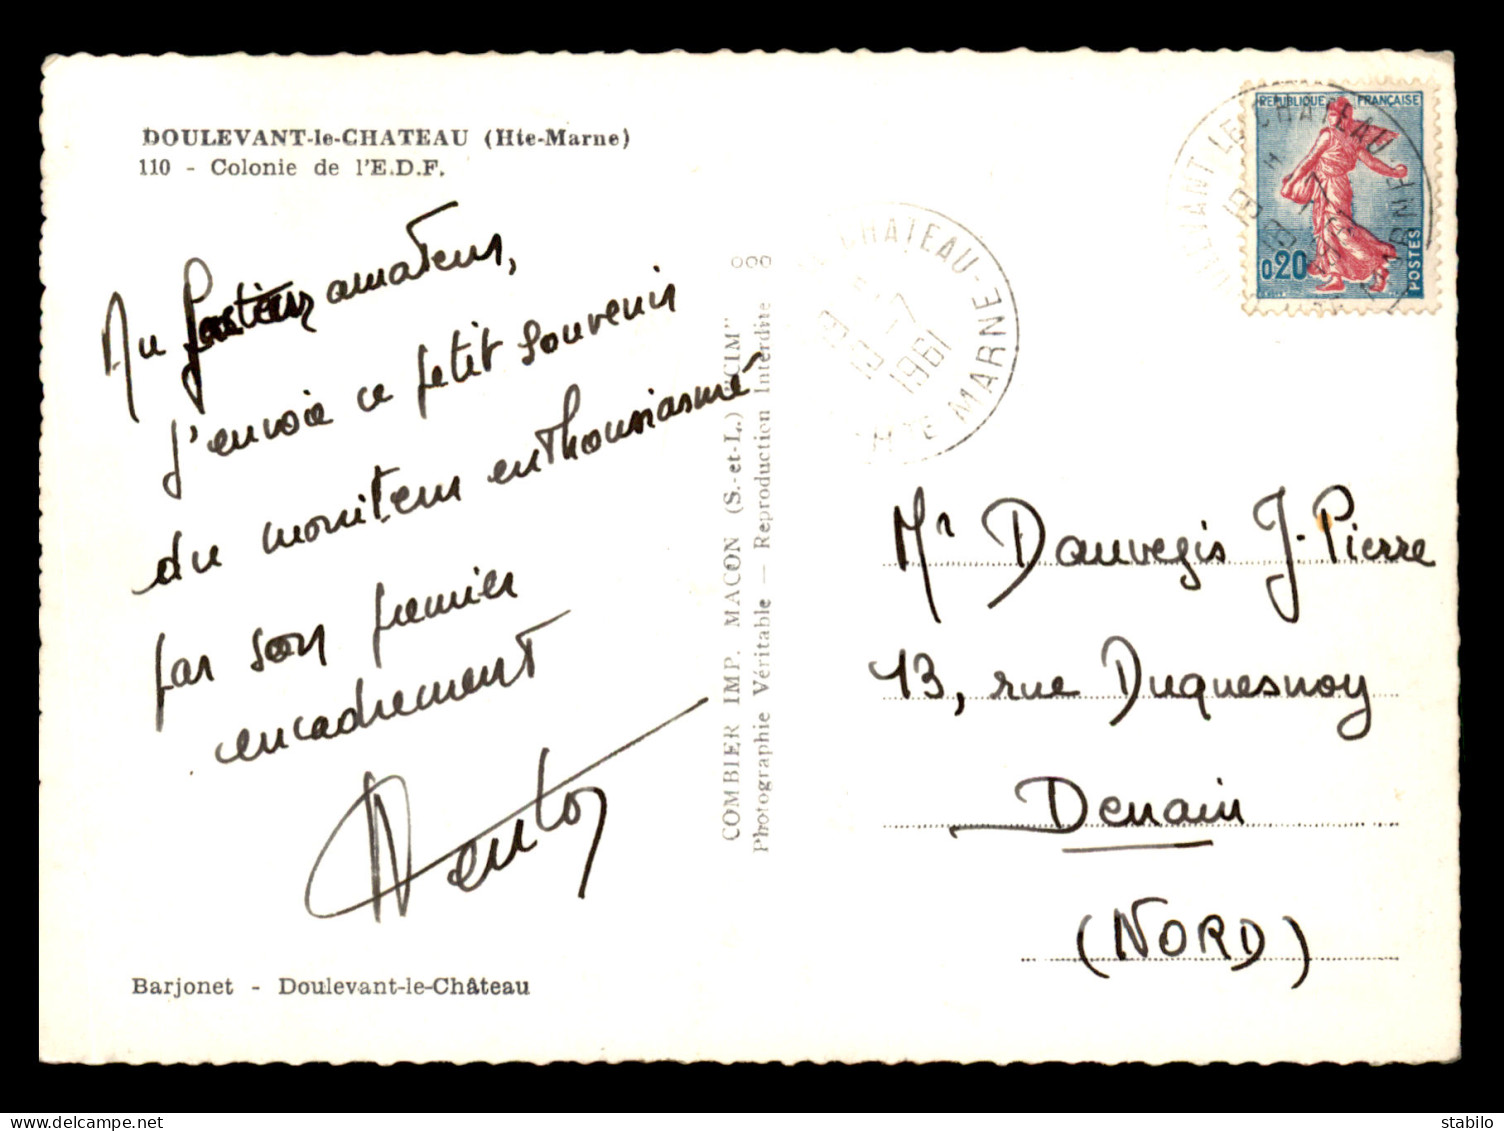 DOULEVANT-le-CHATEAU (Hte-Marne)
110 - Colonie de l'E.D.F.
Au amateur,
j'envoie ce petit souvenir
du moniteur enthousiasmé
par son premier
encadrement
Barjonet - Doulevant-le-Château
COMBIER IMP. MACON (S.-et-L.) "CIM"
Photographie Véritable — Reproduction Interdite
CHATEAU-
HTE MARNE
18 H
-7
1961
REPUBLIQUE FRANÇAISE
0,20
POSTES
LE CHATEAU
Mr Dauvegis J-Pierre
13, rue Duquesnoy
Denain
(NORD)
stabilo